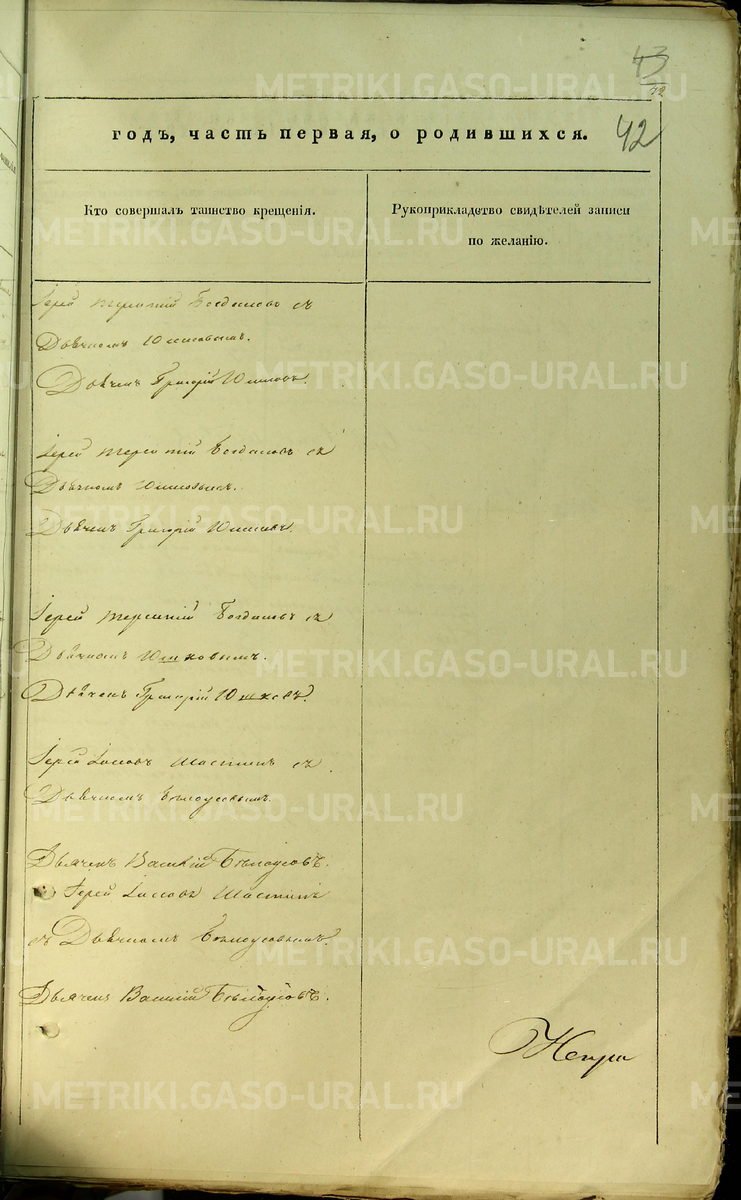 43
72
42
годъ, часть первая, о родившихся.
Кто совершалъ таинство крещенія.
Рукоприкладство свидѣтелей записи
по желанію.
Іерей Терентій Богдановъ съ
Дьячкомъ Юшковымъ.
Дьячекъ Григорій Юшковъ.
Іерей Терентій Богдановъ съ
Дьячкомъ Юшковымъ.
Дьячекъ Григорій Юшковъ.
Іерей Терентій Богдановъ съ
Дьячкомъ Юшковымъ.
Дьячекъ Григорій Юшковъ.
Іерей Іаковъ Шастинъ съ
Дьячкомъ Бѣлоусовымъ.
Дьячекъ Василій Бѣлоусовъ.
Іерей Іаковъ Шастинъ
съ Дьячкомъ Бѣлоусовымъ.
Дьячекъ Василій Бѣлоусовъ.
METRIKI.GASO-URAL.RU